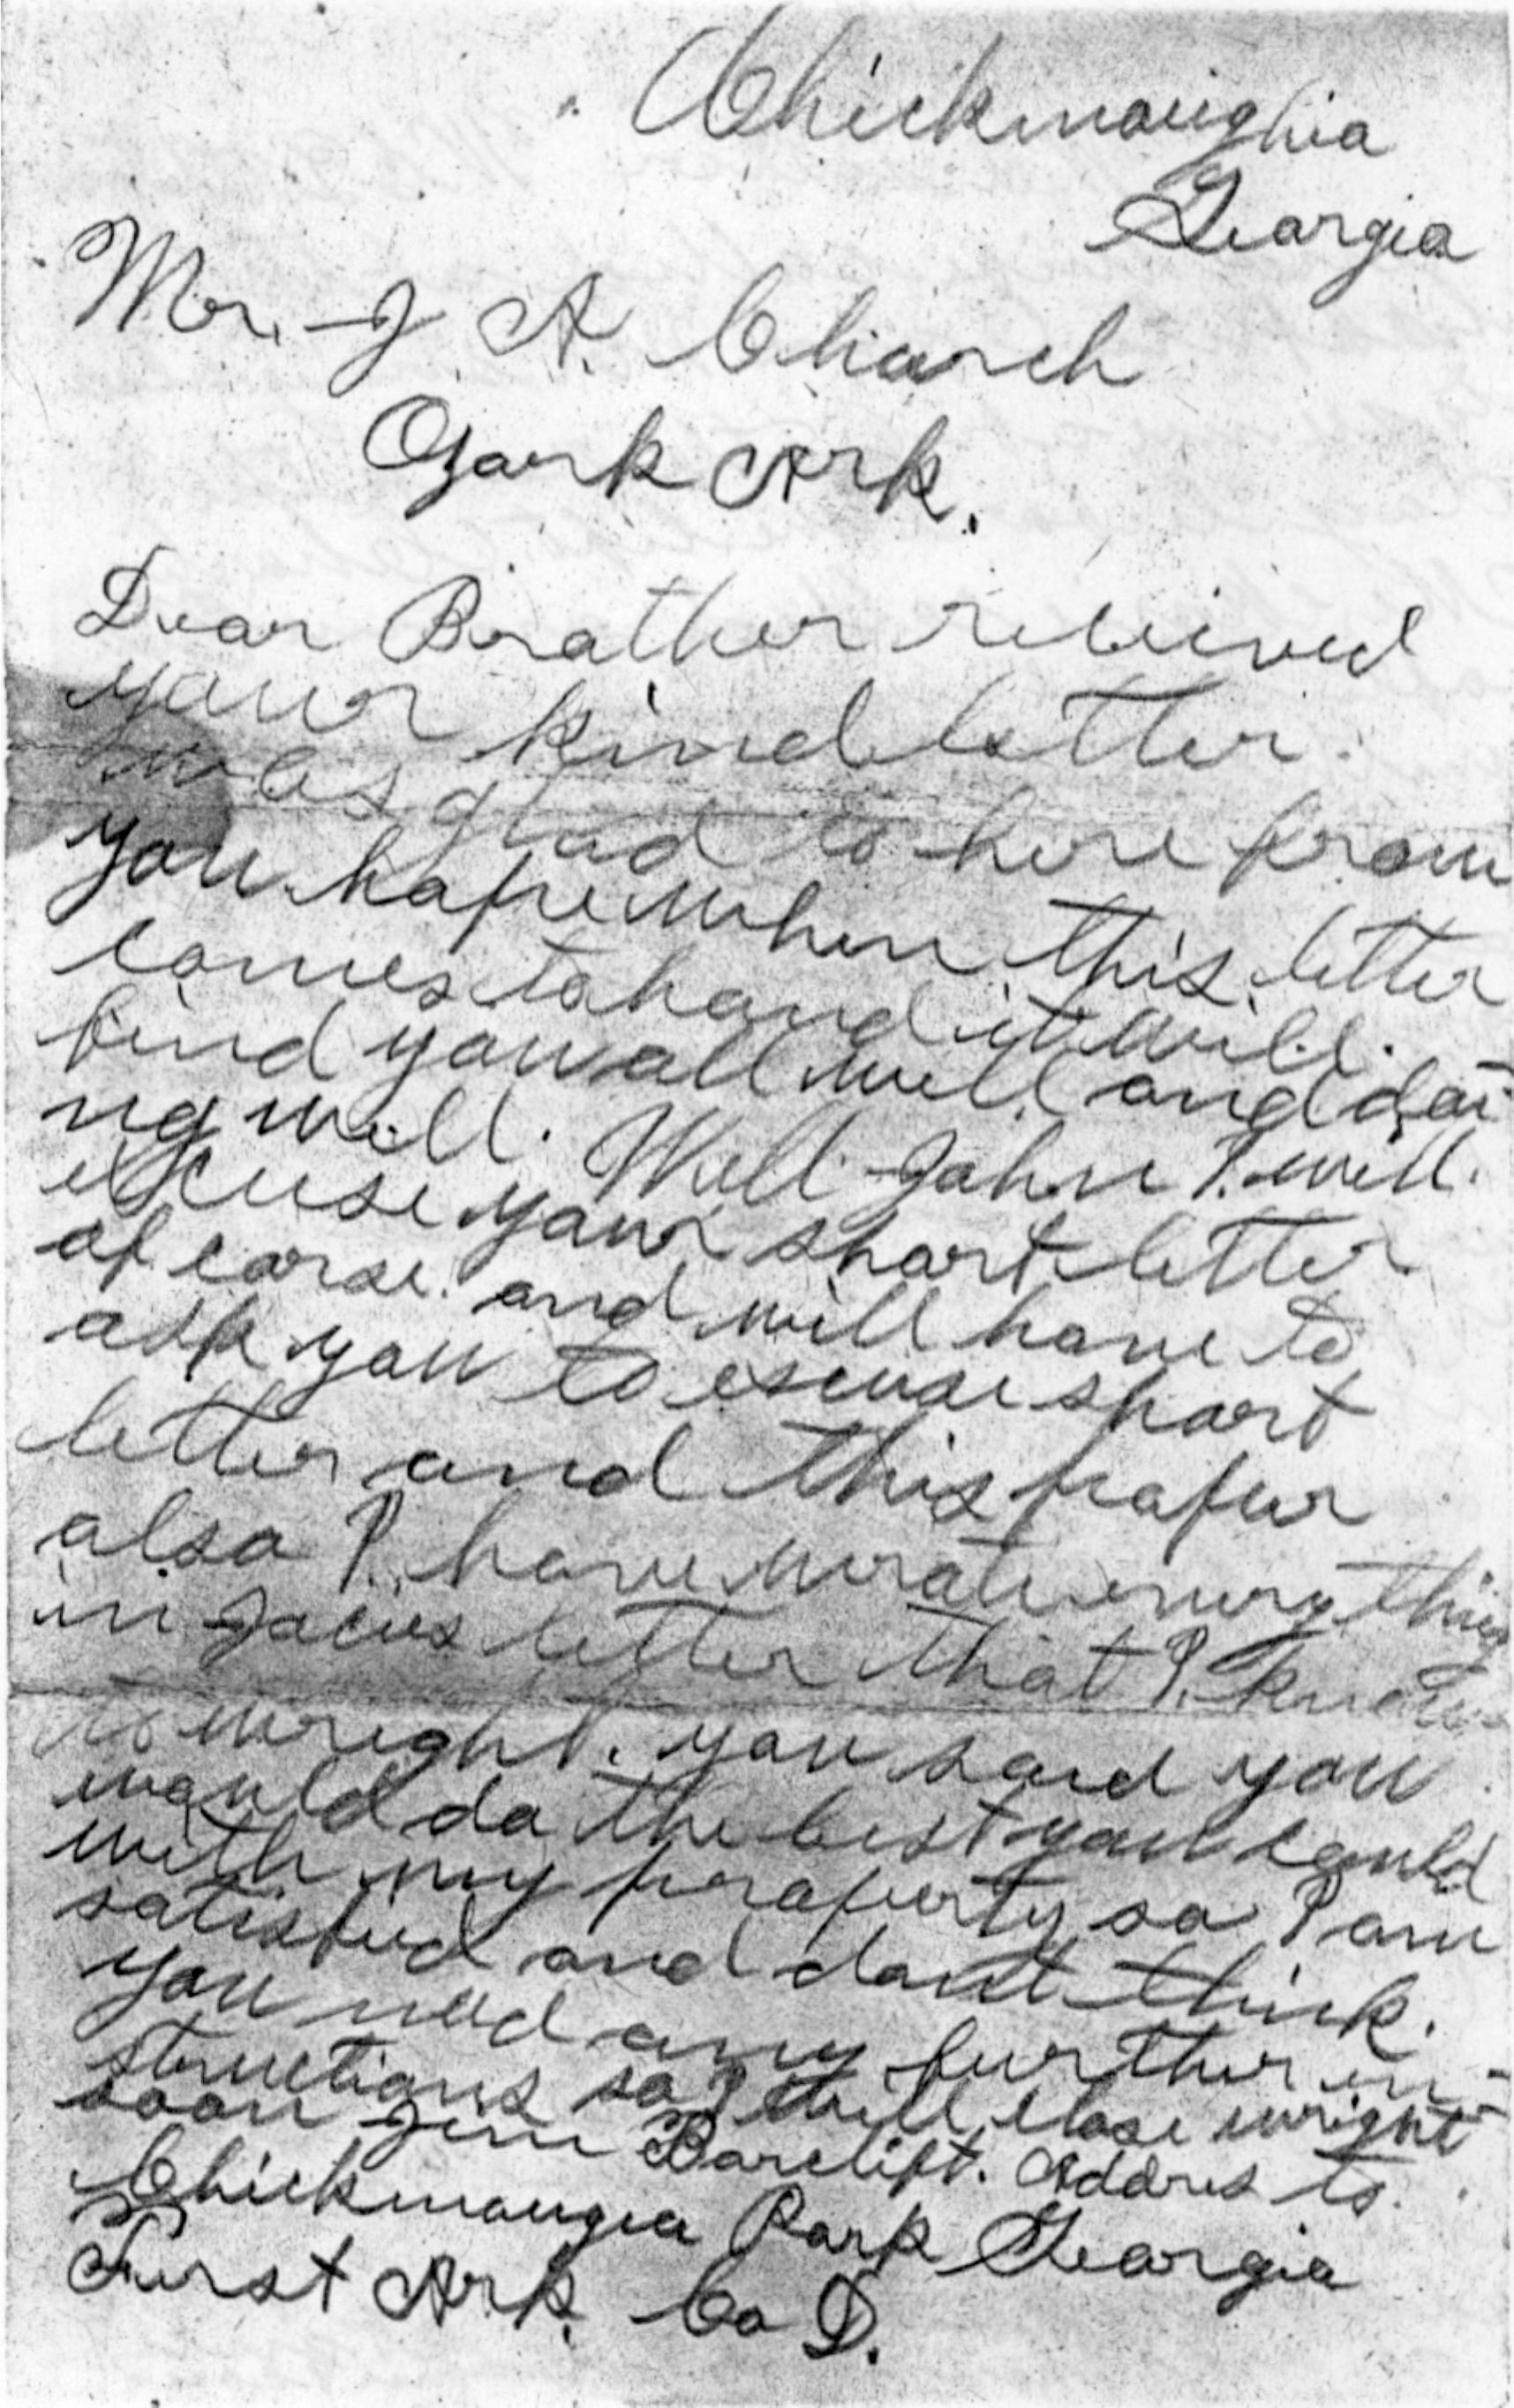 Chickmaughia
Georgia
Mr. J A. Church
Ozark Ark.
Dear Brother recived
your kind letter
was glad to here from
you hope when this letter
comes to hand it will
find you all well and doi-
ng well. Well John I will
excuse your short letter
of corse. and will have to
ask you to escuse short
letter and this paper
also I have wrote every thing
in letter that I know
to wright. you said you
would do the best you could
with my property so I am
satisfied and dont think.
you need any further in-
structions so I will close wright
soon Jim Barclift. Addres to.
Chickmaugia Park Georgia
First Ark. Co D.